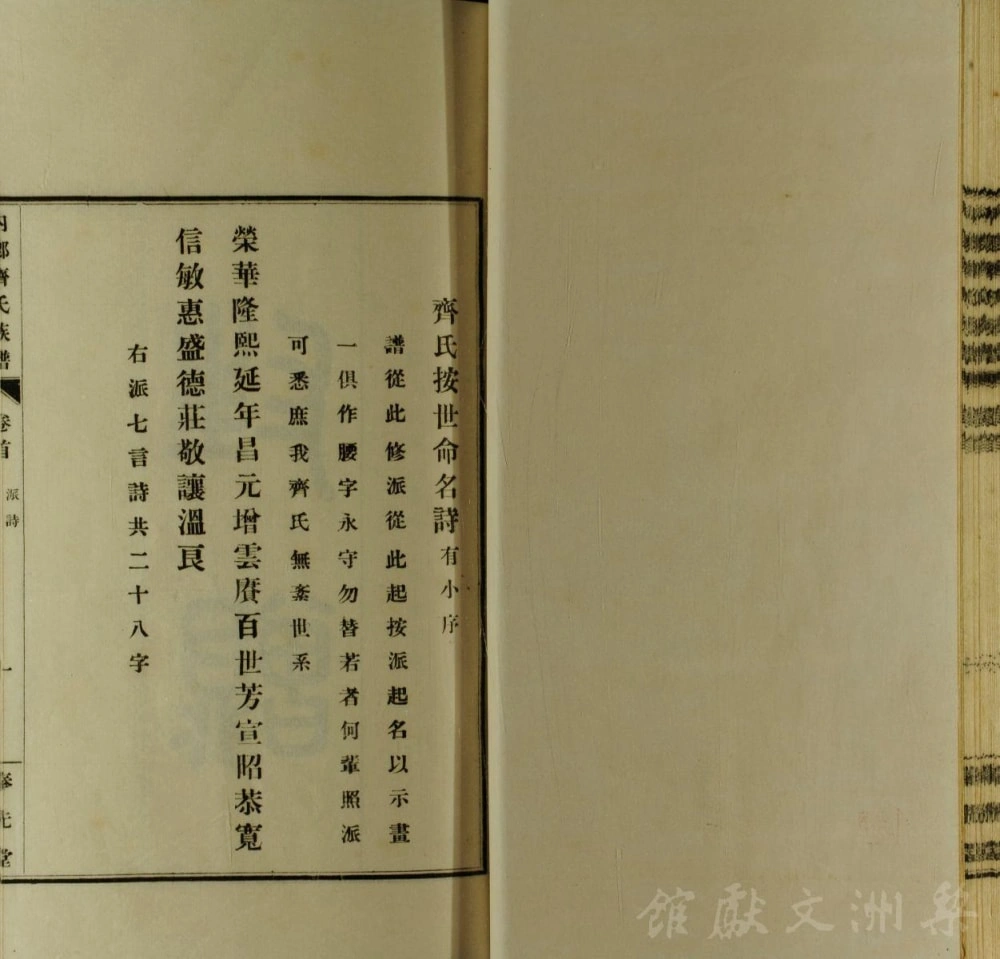 齊氏按世命名詩有小序
譜從此修派從此起按派起名以示畫
一俱作腰字永守勿替若者何輩照派
可悉庶我齊氏無紊世系
榮華隆熙延年昌元增雲賡百世芳宣昭恭寬
信敏惠盛德莊敬讓溫良
右派七言詩共二十八字
內鄉齊氏族譜 卷首 派詩 一 奉先堂
梨洲文獻館